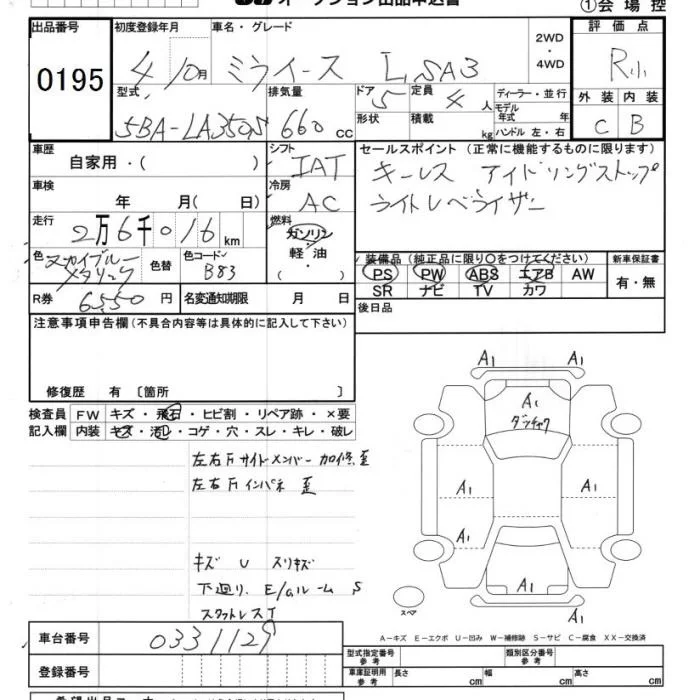 ①会場控
出品番号
0195
初度登録年月
4 10月
車名・グレード
ミライース L SA3
2WD
・
4WD
評価点
R小
型式
5BA-LA350S
排気量
660 cc
ドア
5
定員
4 人
形状
積載
kg
ディーラー・並行
モデル
年式 年
ハンドル 左・右
外装
内装
C
B
車歴
自家用・( )
シフト
IAT
セールスポイント(正常に機能するものに限ります)
キーレス アイドリングストップ
ライトレベライザー
車検
年 月( 日)
冷房
AC
走行
2万6千016km
燃料
ガソリン
軽油
( )
色
スカイブルー
メタリック
色替
色コード
B83
装備品(純正品に限り○をつけてください)
PS PW ABS エアB AW
SR ナビ TV カワ
新車保証書
有・無
R券
6550 円
名変通知期限
月 日
後日品
注意事項申告欄(不具合内容等は具体的に記入して下さい)
修復歴 有〔箇所 〕
検査員
記入欄
FW キズ・飛石・ヒビ割・リペア跡・×要
内装 キズ・汚レ・コゲ・穴・スレ・キレ・破レ
左右Fサイドメンバー 加修、歪
左右Fインパネ 歪
キズ U スリキズ
下廻り、E/gルーム S
スペアタイヤレス
A1 A1
A1
ダッチャク
A1 A1
A1
A1
A1
スペア
A-キズ E-エクボ U-凹み W-補修跡 S-サビ C-腐食 XX-交換済
車台番号
0331129
登録番号
型式指定番号
参考
類別区分番号
参考
車庫証明用
参考
長さ cm
幅 cm
高さ cm